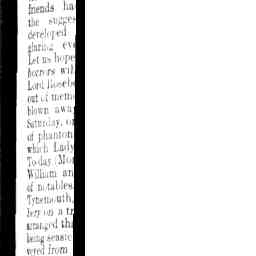 friends ha
the sugges
developed
glaring eve
Let us hope
horrors wil
Lord Roseb
out of mem
blown away
Saturday, or
of phantom
which Lady
To-day (Mon
William an
of notables
Tynemouth,
bery on a tr
arranged tha
being seasic
vered from